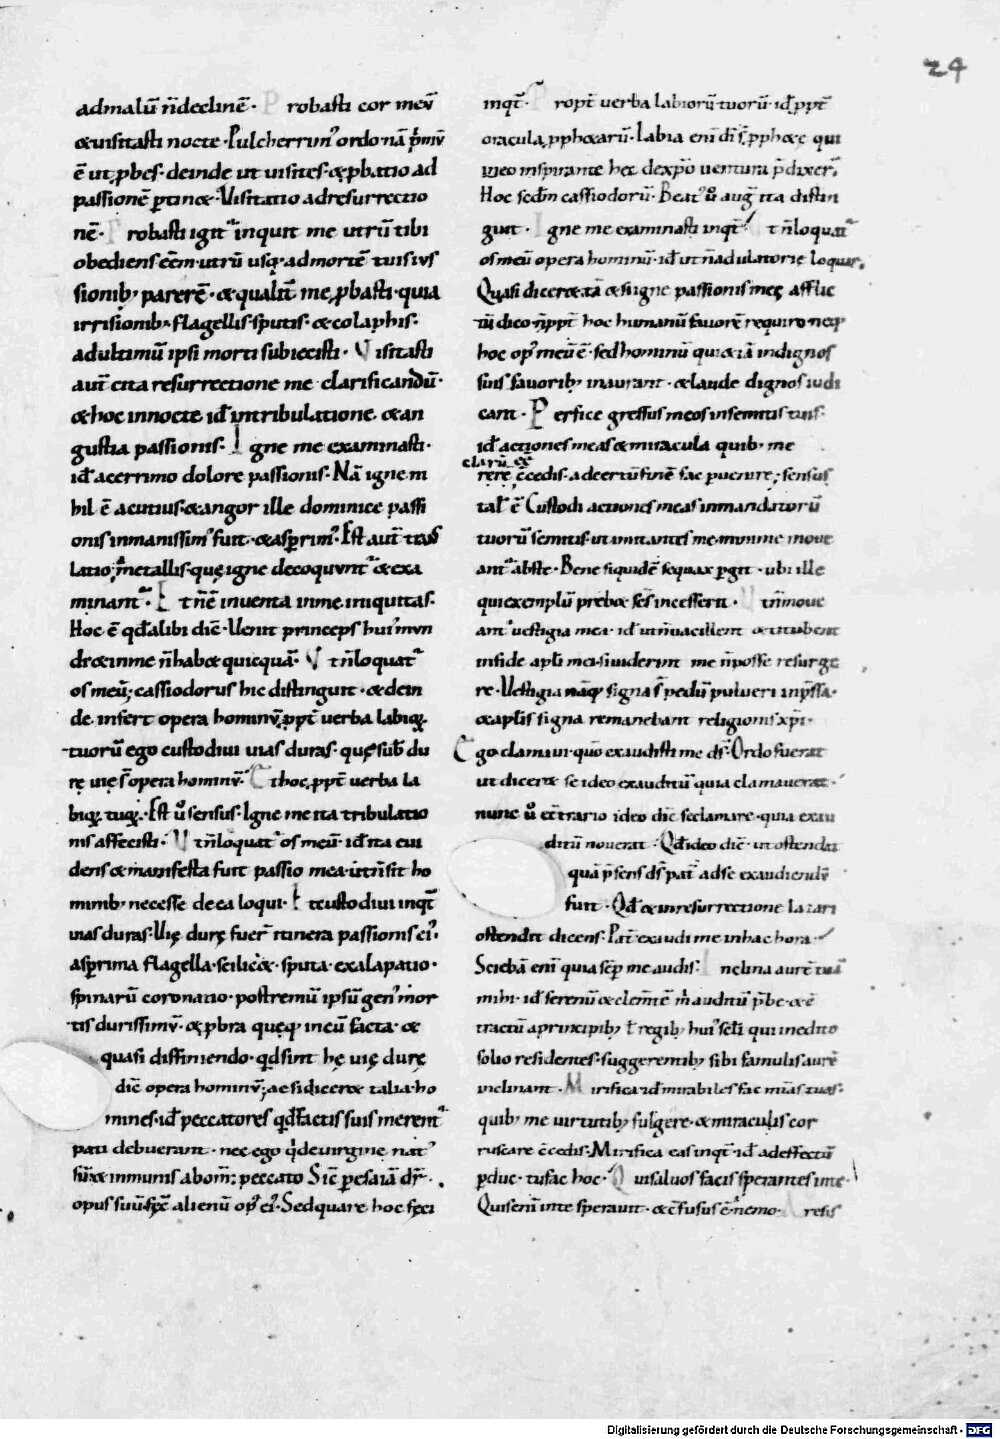 24
ad malū n̄ declinē · Probasti cor meū
& uisitasti nocte · Pulcherrim' ordo nā p̄mū
ē ut ꝓbes · deinde ut uisites · & ꝓbatio ad
passionē ꝑtin& · Uisitatio ad resurrectio
nē · Probasti igit᷑ inquit me utrū tibi
obediens eēm · utrū usq; ad mortē tuis ius
sionib; parerē · & qualit̄ me ꝓbasti · quia
irrisionib; flagellis · sputis · & colaphis ·
ad ultimū ipsi morti subiecisti · Uisitasti
aut̄ cita resurrectione me clarificandū ·
& hoc in nocte id ē in tribulatione & an
gustia passionis · Igne me examinasti ·
id ē acerrimo dolore passionis · Nā igne ni
hil ē acutius · & angor ille dominice passi
onis inmanissim' fuit · & asꝑrim' · Est aut̄ trans
latio metallis · quę igne decoquunt᷑ & exa
minant᷑ · Et n̄ ē inuenta in me iniquitas ·
Hoc ē qd̄ alibi dic̄ · Uenit princeps hui' mun
di & in me n̄ hab& quicquā · Ut n̄ loquat᷑
os meū; cassiodorus hic distinguit · & dein
de · insert opera hominū · ꝓpt̄ uerba labioꝝ
tuorū ego custodiui uias duras · quę sub̄ du
rę uię s̄ opera hominū · Et hoc ꝓpt̄ uerba la
bioꝝ tuoꝝ · Est ū sensus · Igne me ita tribulatio
nis affecisti · Ut n̄ loquat᷑ os meū · id ē ita eui
dens & manifesta fuit passio mea · ut n̄ sit ho
minib; necesse de ea loqui · Et custodiui inqt̄
uias duras · Uię durę fuer̄ itinera passionis ei' ·
asꝑrima flagella · scilic& · sputa · exalapatio ·
spinarū coronatio · postremū ipsū gen' mor
tis durissimū · & ꝓbra quęq; in eū facta · &
quasi diffiniendo · qd̄ sint hę uię durę
dic̄ opera hominū; ac si dicer& talia ho
mines · id ē peccatores qd̄ factis suis merent᷑
pati debuerant · nec ego qi de uirgine nat'
sū & inmunis ab om̄i peccato Sic̄ ꝑ esaiā dr̄ ·
opus suū fec̄ alienū op' ei' · Sed quare hoc feci
inqt̄ · Propt̄ uerba labiorū tuorū · id ē ꝓpt̄
oracula ꝓph&arū · Labia eni di s̄ ꝓph&ę qui
eo inspirante hec de xp̄o uentura p̄dixer̄ ·
Hoc scd̄m cassiodorū · Beat' ū aug᷑ ita distin
guit · Igne me examinasti inqt̄ / Ut n̄ loquat᷑
os meū opera hominū · id ē ut n̄ adulatorię loquar ·
Quasi dicer& tā & si igne passionis meę afflic
tū dico n̄ ꝓpt̄ hoc humanū fauorē requiro neq;
hoc op' meū ē · sed hominū qui & iā indignos
suis fauorib; inaurant · & laude dignos iudi
cant · Perfice gressus meos in semitis tuis ·
id ē actiones meas & miracula quib; me
claru ex
rere c̄cedis · ad certū finē fac ꝑuenire; sensus
tal' ē Custodi actiones meas in mandatorū
tuorū semitis · ut imitantes me minime moue
ant᷑ abs te · Bene siquidē sequax ꝑgit · ubi ille
qui exemplū preb& se s̄ incesserit · Ut n̄ moue
ant᷑ uestigia mea · id ē ut n̄ uacillent & titubent
in fide apl̄i mei · si uiderint me n̄ posse resurge
re · Uestigia nāq; signa s̄ pedū pulueri inp̄ssa ·
& apl̄is signa remanebant religionis xp̄i ·
Ego clamaui · qm̄ exaudisti me ds̄ · Ordo fuerat
ut dicer& se ideo exauditū quia clamauerat ·
nunc ū ec̄trario ideo dic̄ se clamare · quia exau
ditū nouerat · Qd̄ ideo dic̄ · ut ostendat
quā p̄sens ds̄ pat̄ ad se exaudiendū
fuit · Qd̄ & in resurrectione lazari
ostendit dicens · Pat̄ exaudi me in hac hora ·
Sciebā eni quia sēp me audis · Inclina aurē tuā
mihi · id ē serenū & clem̄tē m̄ auditū p̄be · & ē
tractū a principib; ł regib; hui' scl̄i qui in edito
solio residentes · suggerentib; sibi famulis aurē
inclinant · Mirifica id ē mirabiles fac mias tuas ·
quib; me uirtutib; fulgere · & miraculis cor
ruscare c̄cedis · Mirifica eas inqt̄ · id ē ad effectū
ꝑduc · tu fac hoc · Qui saluos facis sperantes in te ·
Quis eni in te sperauit · & c̄fusus ē · nemo · A resis
Digitalisierung gefördert durch die Deutsche Forschungsgemeinschaft - DFG